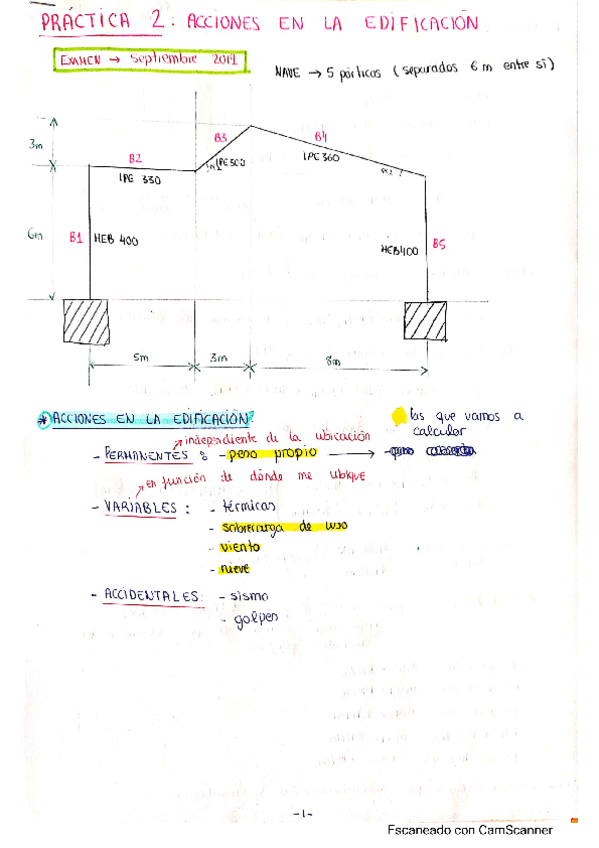 PRÁCTICA 2: ACCIONES EN LA EDIFICACIÓN
EXAMEN → Septiembre 2019
NAVE → 5 pórticos (separados 6 m entre sí)
3m
B3
B4
B2
IPE 300
IPE 360
IPE 330
6m
B1
HEB 400
HEB400
B5
5m
3m
8m
* ACCIONES EN LA EDIFICACIÓN:
las que vamos a
calcular
independiente de la ubicación
- PERMANENTES: - peso propio →
en función de dónde me ubique
- VARIABLES: - térmicas
- sobrecarga de uso
- viento
- nieve
- ACCIDENTALES: - sismo
- golpes
-1-
Escaneado con CamScanner